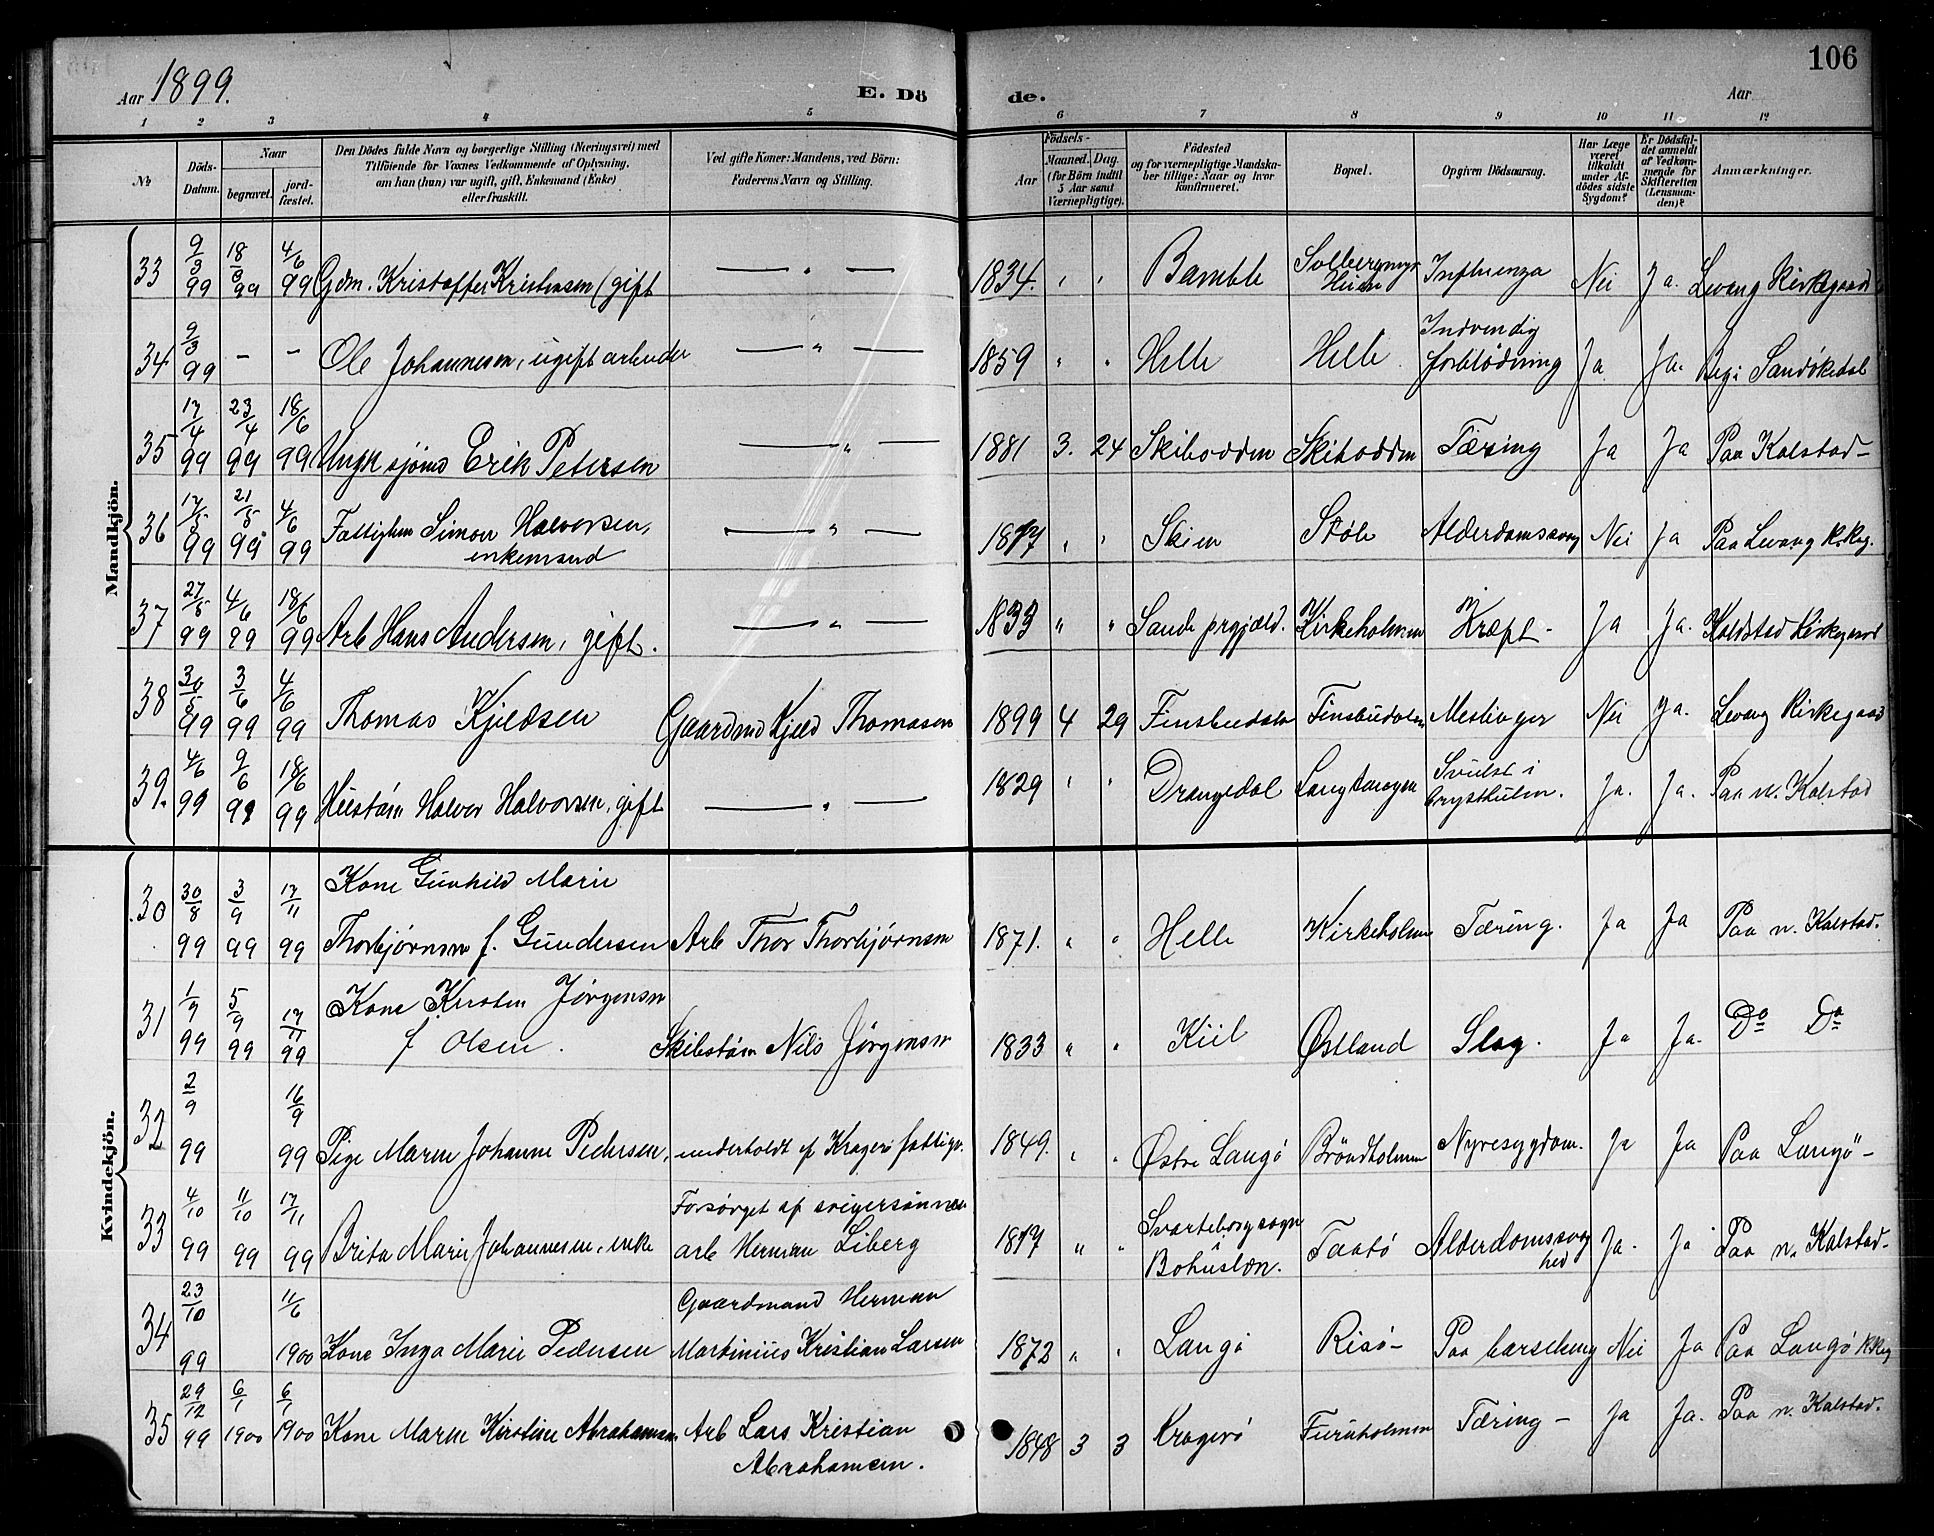 106
Aar 1899. E. Dö de. Aar
1 2 3 4 5 6 7 8 9 10 11 12
No
Döds-Datum.
Naar
begravet.
jord-fæstet.
Den Dödes fulde Navn og borgerlige Stilling (Næringsvei) med
Tilföiende for Voxnes Vedkommende af Oplysning.
om han (hun) var ugift, gift, Enkemand (Enke)
eller fraskilt.
Ved gifte Koner: Mandens, ved Börn:
Faderens Navn og Stilling.
Födsels-
Aar
Maaned. Dag.
(for Börn indtil
5 Aar samt
Værnepligtige).
Födested
og for værnepligtige Mandska-
ber tillige: Naar og hvor
konfirmeret.
Bopæl.
Opgiven Dödsaarsag.
Har Læge
været
tilkaldt
under Af-
dödes sidste
Sygdom?
Er Dödsfal-
det anmeldt
af Vedkom-
mende for
Skifteretten
(Lensman-
den)?
Anmærkninger.
Mandkjön.
33 9/3 99 18/3 99 4/6 99 Gdm. Kristoffer Kristensen (gift — „ — 1834. „ „ Bamble Influenza Nei Ja. Levang Kirkegaard
34. 9/3 99 - - Ole Johannesen, ugift arbeider — „ — 1859 „ „ Helle Helle Indvendig forblödning Ja Ja. Beg i Sandökedal
35 17/4 99 23/4 99 18/6 99 Ungk sjömd Erik Petersen — „ — 1881 3. 24 Skibodden Skibodden Tæring Ja Ja Paa Kalstad-
36 17/5 99 21/5 99 4/6 99 Fattiglem Simon Halvorsen, enkemand — „ — 1817 „ „ Skien Stöle Alderdomssvag Nei Ja Paa Levang K.keg.
37 27/5 99 4/6 99 18/6 99 Arb Hans Andersen, gift. — „ — 1833 „ „ Sande prgjæld. Kirkeholmen Kræft - Ja Ja. Kalstad Kirkegaard
38 30/5 99 3/6 99 4/6 99 Thomas Kjeldsen Gaardmd Kjeld Thomasen 1899 4 29 Finsbudalen Finsbudalen Meslinger Nei Ja. Levang Kirkegaard
39. 4/6 99 9/6 99 18/6 99 Hustöm Halvor Halvorsen, gift — „ — 1829 „ „ Drangedal Langtangen Svulst i brysthulen. Ja. Ja. Paa n. Kalstad
Kvindekjön.
30 30/8 99 3/9 99 17/11 99 Kone Gunhild Marie Thorbjörnsen f. Gundersen Arb Thor Thorbjørnsen 1871. „ „ Helle Kirkeholmen Tæring. Ja Ja Paa n. Kalstad.
31 1/9 99 5/9 99 17/11 99 Kone Kirsten Jørgensen f Olsen. Skibstöm Nils Jørgensen 1833 „ „ Kiil Østland Slag. Ja Ja. Do Do
32 2/9 99 16/9 99 Pige Maren Johanne Pedersen, underholdt af Kragerö fattigv. 1849. „ „ Østre Langö Bröndholmen Nyresygdom. Ja Ja Paa Langö-
33 4/10 99 11/10 99 17/11 99 Brita Marie Johannesen, enke Forsörget af svigersönnen arb Herman Liberg 1817 „ „ Svarteborg sogn Bohuslæn. Taatö Alderdomssvaghed Ja. Ja Paa n. Kalstad-
34 23/10 99 11/6 1900 Kone Inga Marie Pedersen Gaardmand Herman Martinius Kristian Larsen 1872 „ „ Langö Risö- Paa barseleng Nei Ja Paa Langö K.keg
35 29/12 99 6/1 1900 6/1 1900 Kone Maren Kirstine Abrahamsen Arb Lars Kristian Abrahamsen. 1848 3 3 Kragerö Furuholmen Tæring - Ja Ja. Paa n. Kalstad.